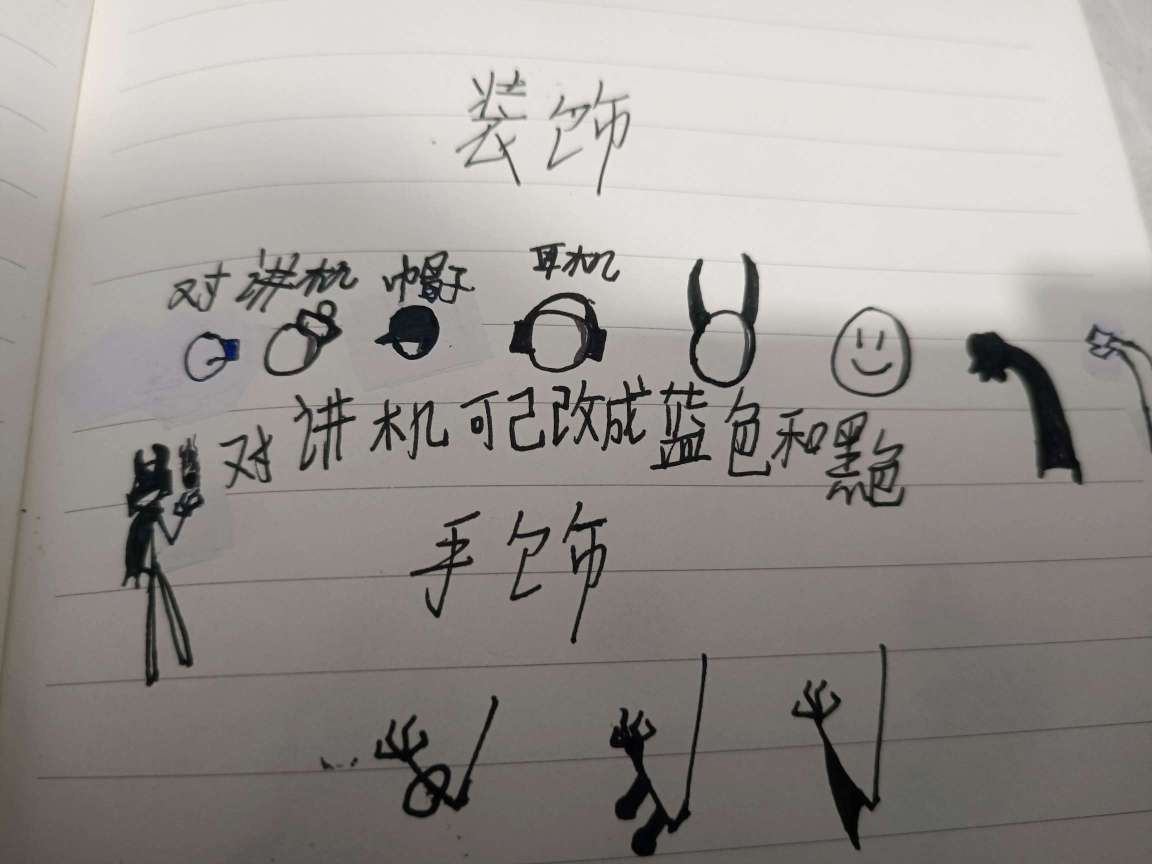 装饰
对讲机 帽子 耳机
对讲机可己改成蓝色和黑色
手饰